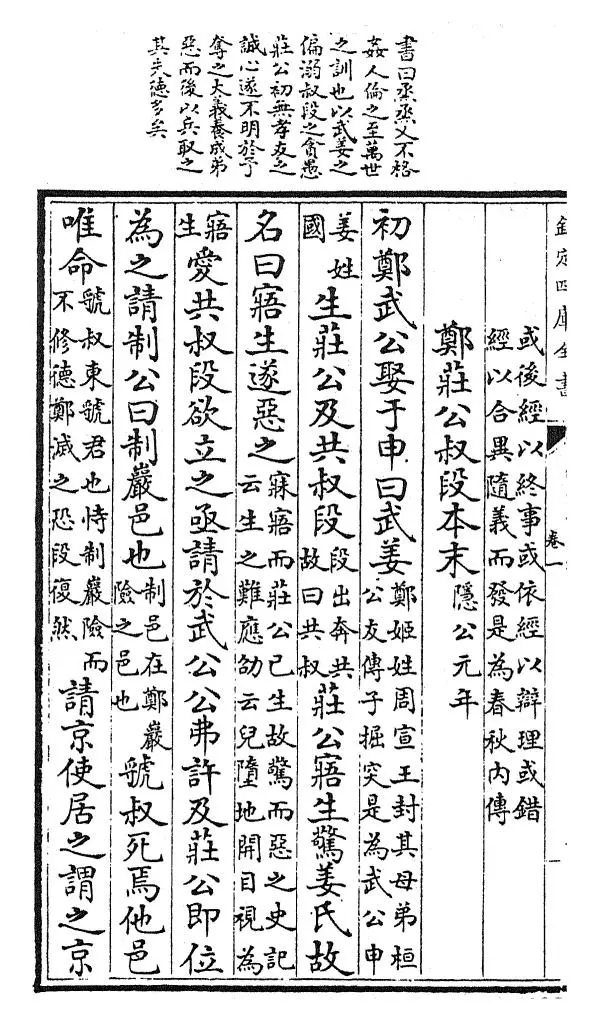 書曰烝烝乂不格
姦人倫之至萬世
之訓也以武姜之
偏溺叔段之貪愚
莊公初無孝友之
誠心遂不明於予
奪之大義養成弟
惡而後以兵取之
其失德多矣
欽定四庫全書
卷一
或後經以終事或依經以辯理或錯
經以合異隨義而發是為春秋內傳
鄭莊公叔段本末隱公元年
初鄭武公娶于申曰武姜鄭姬姓周宣王封其母弟桓公友傳子掘突是為武公申
國姜姓生莊公及共叔段段出奔共故曰共叔莊公寤生驚姜氏故
名曰寤生遂惡之寐寤而莊公已生故驚而惡之史記云生之難應劭云兒墮地開目視為
寤生愛共叔段欲立之亟請於武公公弗許及莊公即位
為之請制公曰制巖邑也制邑在鄭巖險之邑也虢叔死焉他邑
唯命虢叔東虢君也恃制巖險而不修德鄭滅之恐段復然請京使居之謂之京